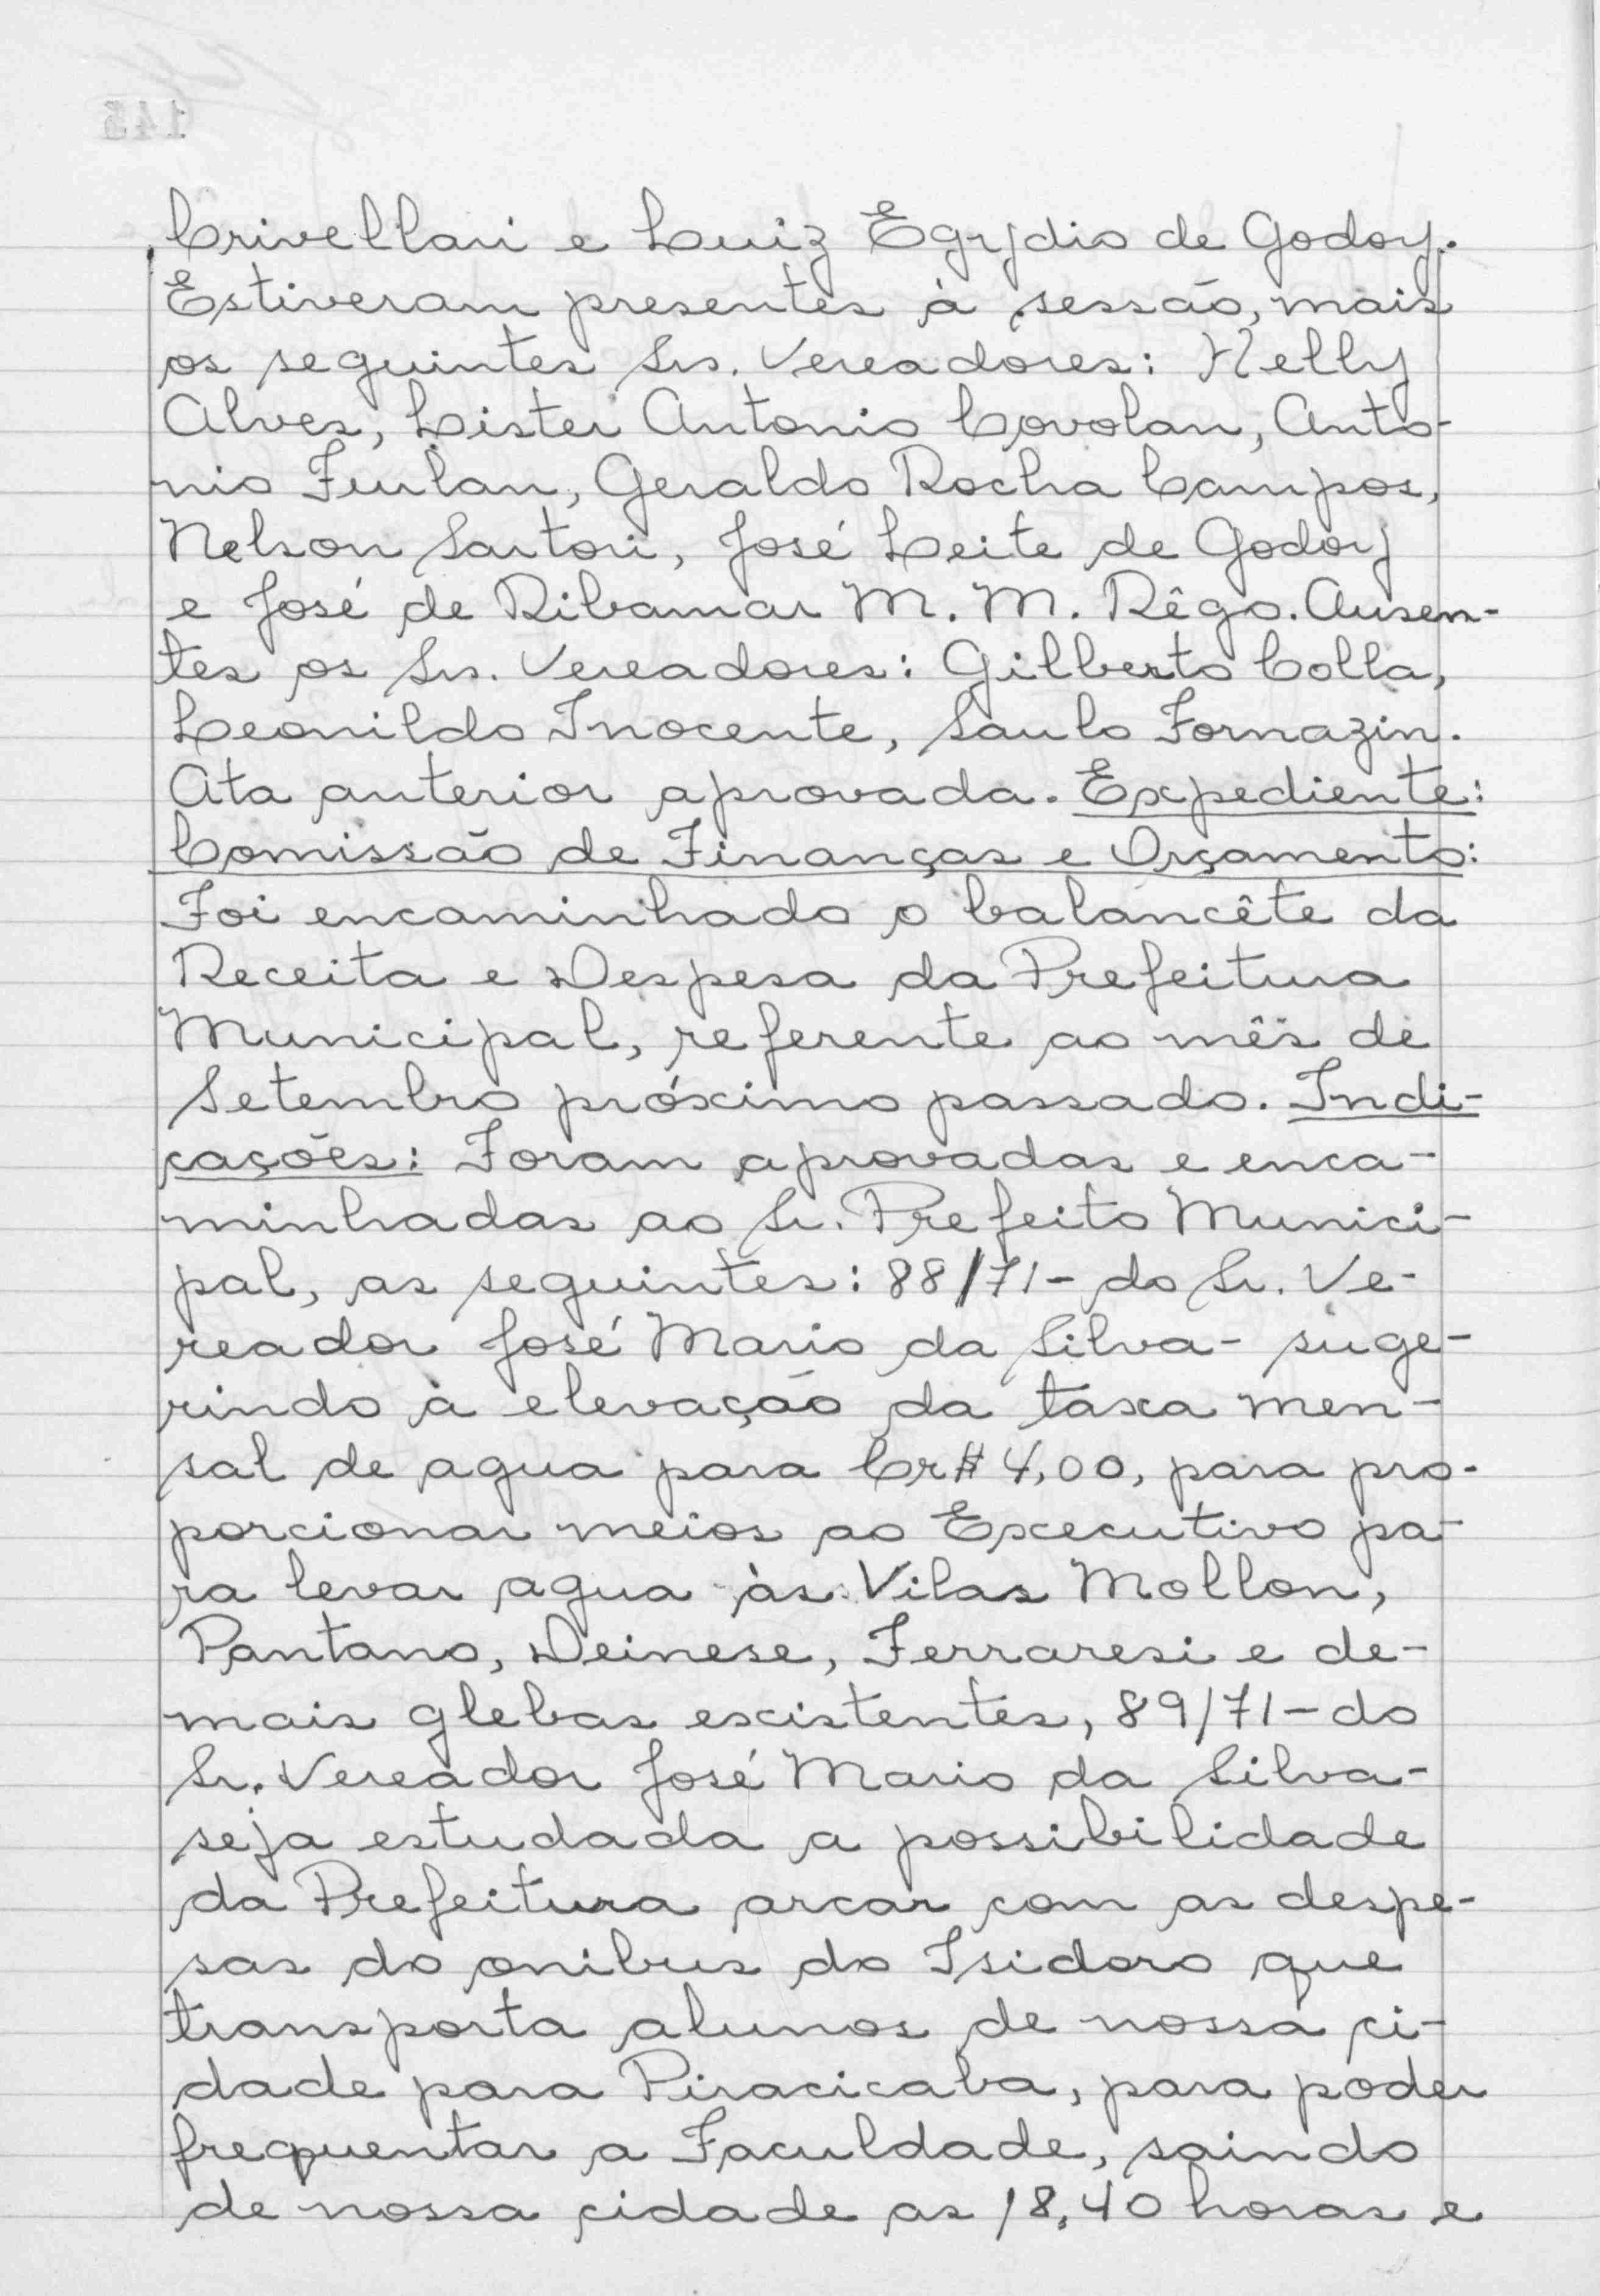 Crivellari e Luiz Egydio de Godoy.
Estiveram presentes à sessão, mais
os seguintes Srs. Vereadores: Nelly
Alves, Lister Antonio Covolan, Anto-
nio Furlan, Geraldo Rocha Campos,
Nelson Sartori, José Leite de Godoy
e José de Ribamar M. M. Rêgo. Ausen-
tes os Srs. Vereadores: Gilberto Colla,
Leonildo Inocente, Saulo Fornazin.
Ata anterior aprovada. Expediente:
Comissão de Finanças e Orçamento:
Foi encaminhado o balancête da
Receita e Despesa da Prefeitura
Municipal, referente ao mês de
Setembro próximo passado. Indi-
cações: Foram aprovadas e enca-
minhadas ao Sr. Prefeito Munici-
pal, as seguintes: 88/71- do Sr. Ve-
reador José Mario da Silva- suge-
rindo à elevação da taxa men-
sal de agua para Cr$ 4,00, para pro-
porcionar meios ao Executivo pa-
ra levar agua às Vilas Mollon,
Pantano, Deinese, Ferraresi e de-
mais glebas existentes, 89/71- do
Sr. Vereador José Mario da Silva-
seja estudada a possibilidade
da Prefeitura arcar com as despe-
sas do onibus do Isidoro que
transporta alunos de nossa ci-
dade para Piracicaba, para poder
frequentar a Faculdade, saindo
de nossa cidade as 18,40 horas e